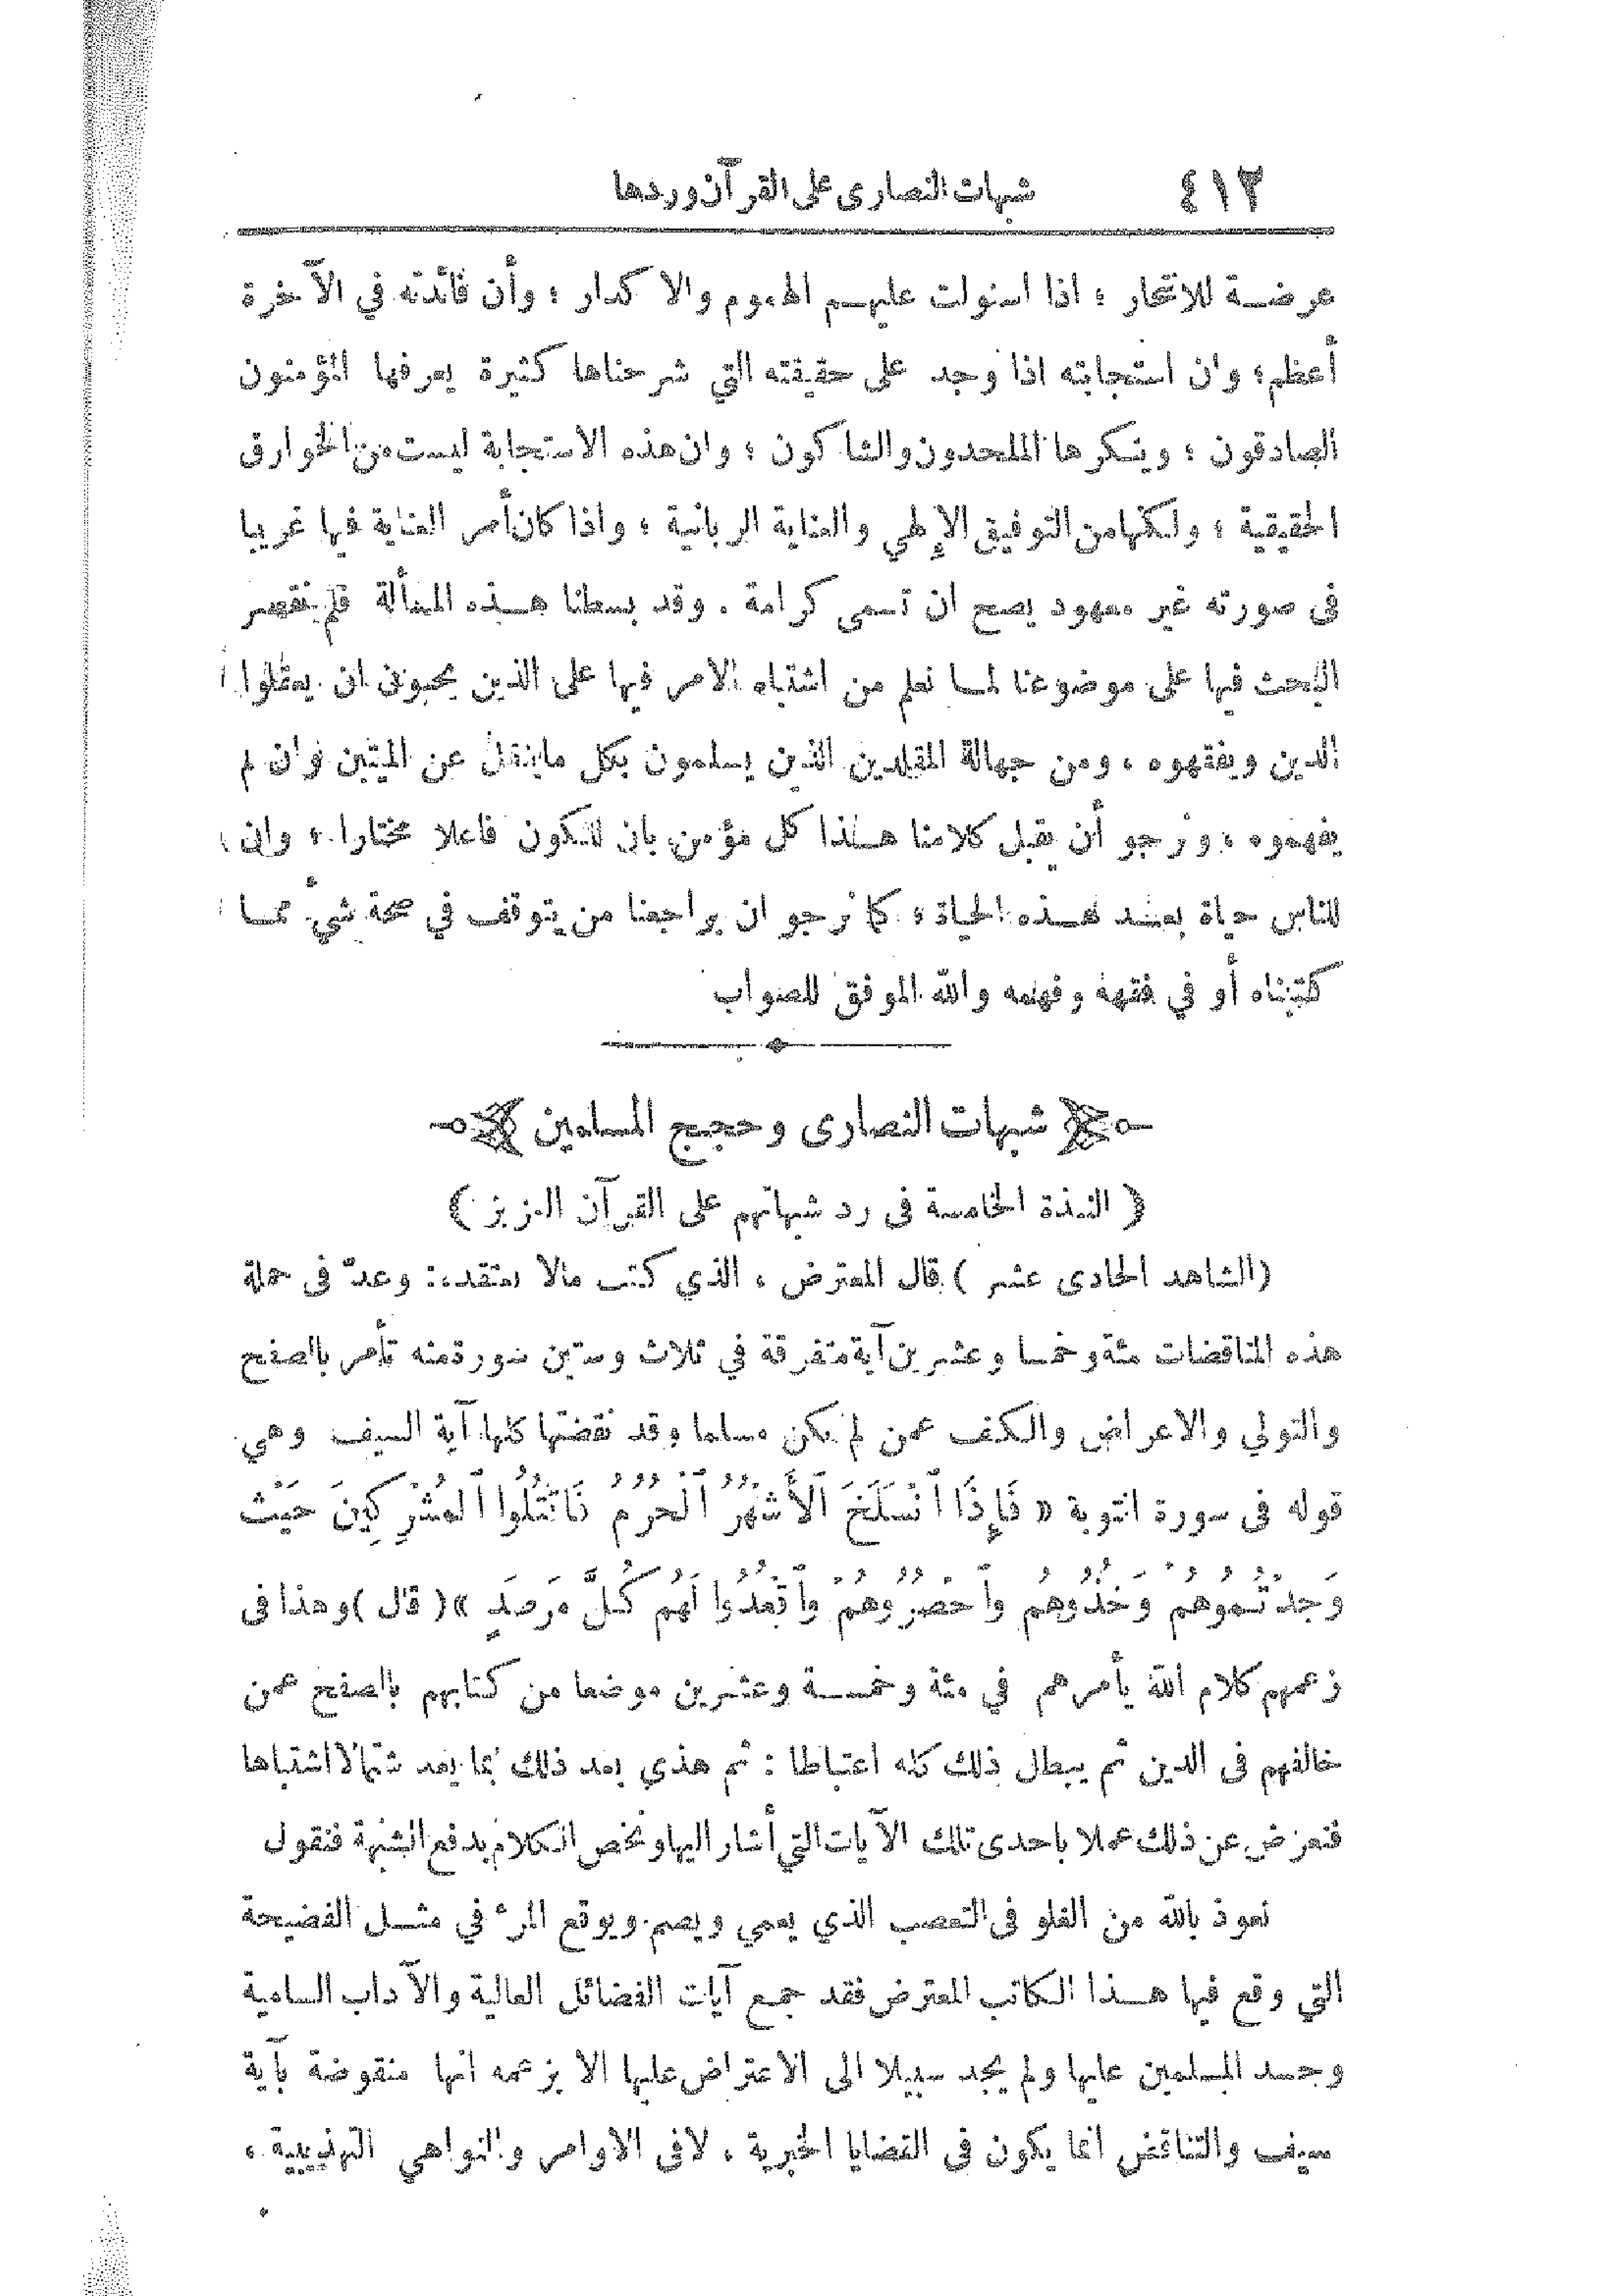 ٤١٢ شبهات النصارى على القرآن وردها
عرضة للانتحار ؛ اذا استولت عليهم الهموم والاكدار ؛ وأن فائدته في الآخرة
أعظم؛ وان استجابته اذا وجد على حقيقته التي شرحناها كثيرة يعرفها المؤمنون
الصادقون ؛ وينكرها الملحدون والشاكون ؛ وان هذه الاستجابة ليست من الخوارق
الحقيقية ؛ ولكنها من التوفيق الإلهي والعناية الربانية ؛ واذا كان أمر العناية فيها غريبا
فى صورته غير معهود يصح ان تسمى كرامة . وقد بسطنا هذه المسألة فلم نقصر
البحث فيها على موضوعنا لما نعلم من اشتباه الامر فيها على الذين يحبون ان يعقلوا
الدين ويفقهوه ، ومن جهالة المقلدين الذين يسلمون بكل ماينقل عن الميتين وان لم
يفهموه ، ونرجو أن يقبل كلامنا هذا كل مؤمن بان للكون فاعلا مختارا ، وان
للناس حياة بعد هذه الحياة ، كما نرجو ان يراجعنا من يتوقف في صحة شيء مما
كتبناه أو في فقهه وفهمه والله الموفق للصواب
شبهات النصارى وحجج المسلمين
( النبذة الخامسة فى رد شبهاتهم على القرآن العزيز )
(الشاهد الحادى عشر ) قال المعترض ، الذي كتب مالا يعتقده: وعدّ فى جملة
هذه المناقضات مئة وخمسا وعشرين آية متفرقة في ثلاث وستين سورة منه تأمر بالصفح
والتولي والاعراض والكف عمن لم يكن مسلما وقد نقضتها كلها آية السيف وهي
قوله فى سورة التوبة « فَإِذَا ٱنْسَلَخَ ٱلأَشْهُرُ ٱلْحُرُمُ فَاقْتُلُوا ٱلمُشْرِكِينَ حَيْثُ
وَجَدْتُمُوهُمْ وَخُذُوهُمْ وٱحْصُرُوهُمْ وٱقْعُدُوا لَهُمْ كُلَّ مَرصَدٍ »( قال )وهذا فى
زعمهم كلام الله يأمرهم في مئة وخمسة وعشرين موضعا من كتابهم بالصفح عمن
خالفهم فى الدين ثم يبطل ذلك كله اعتباطا : ثم هذي بعد ذلك بما يعد شتما لا اشتباها
فنعرض عن ذلك عملا باحدى تلك الآيات التي أشار اليها ونخص الكلام بدفع الشبهة فنقول
نعوذ بالله من الغلو فى التعصب الذي يعمي ويصم ويوقع المرء في مثل الفضيحة
التي وقع فيها هذا الكاتب المعترض فقد جمع آيات الفضائل العالية والآداب السامية
وحسد المسلمين عليها ولم يجد سبيلا الى الاعتراض عليها الا بزعمه انها منقوضة بآية
سيف والتناقض انما يكون فى القضايا الخبرية ، لافى الاوامر والنواهي التهذيبية ،